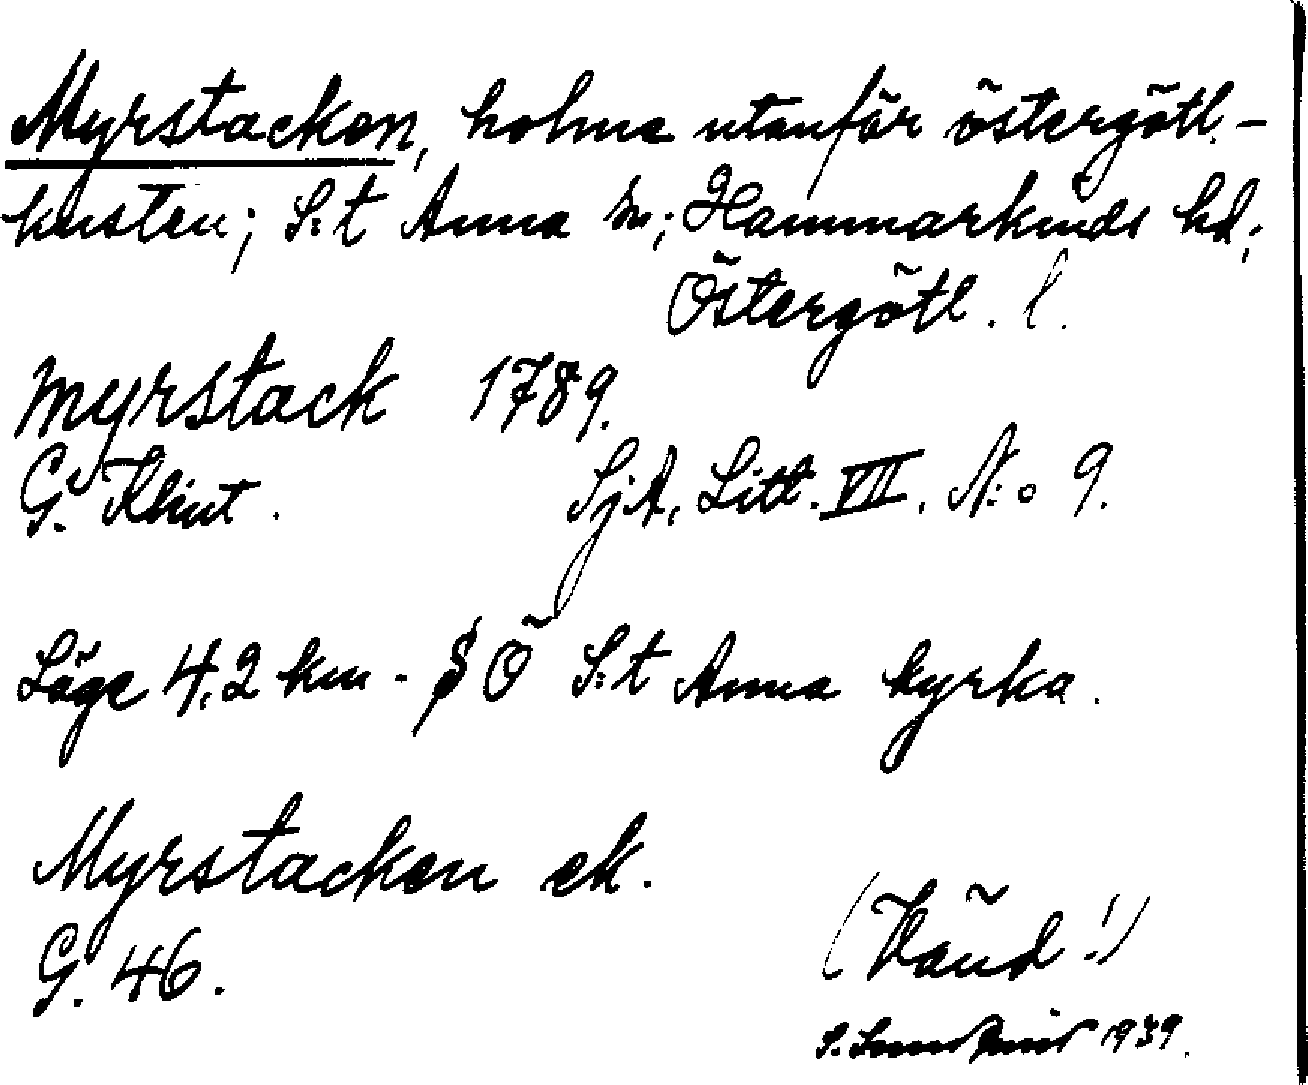 Myrstacken, holme utanför östergötl.-
kusten; S:t Anna sn; Hammarkinds hd;
Östergötl. l.
Myrstack 1789.
G. Klint. SjA, Litt. VII. N:o 9.
Läge 4,2 km - S Ö S:t Anna kyrka.
Myrstacken ek.
G. 46.
(Vänd!)
S. 1939.